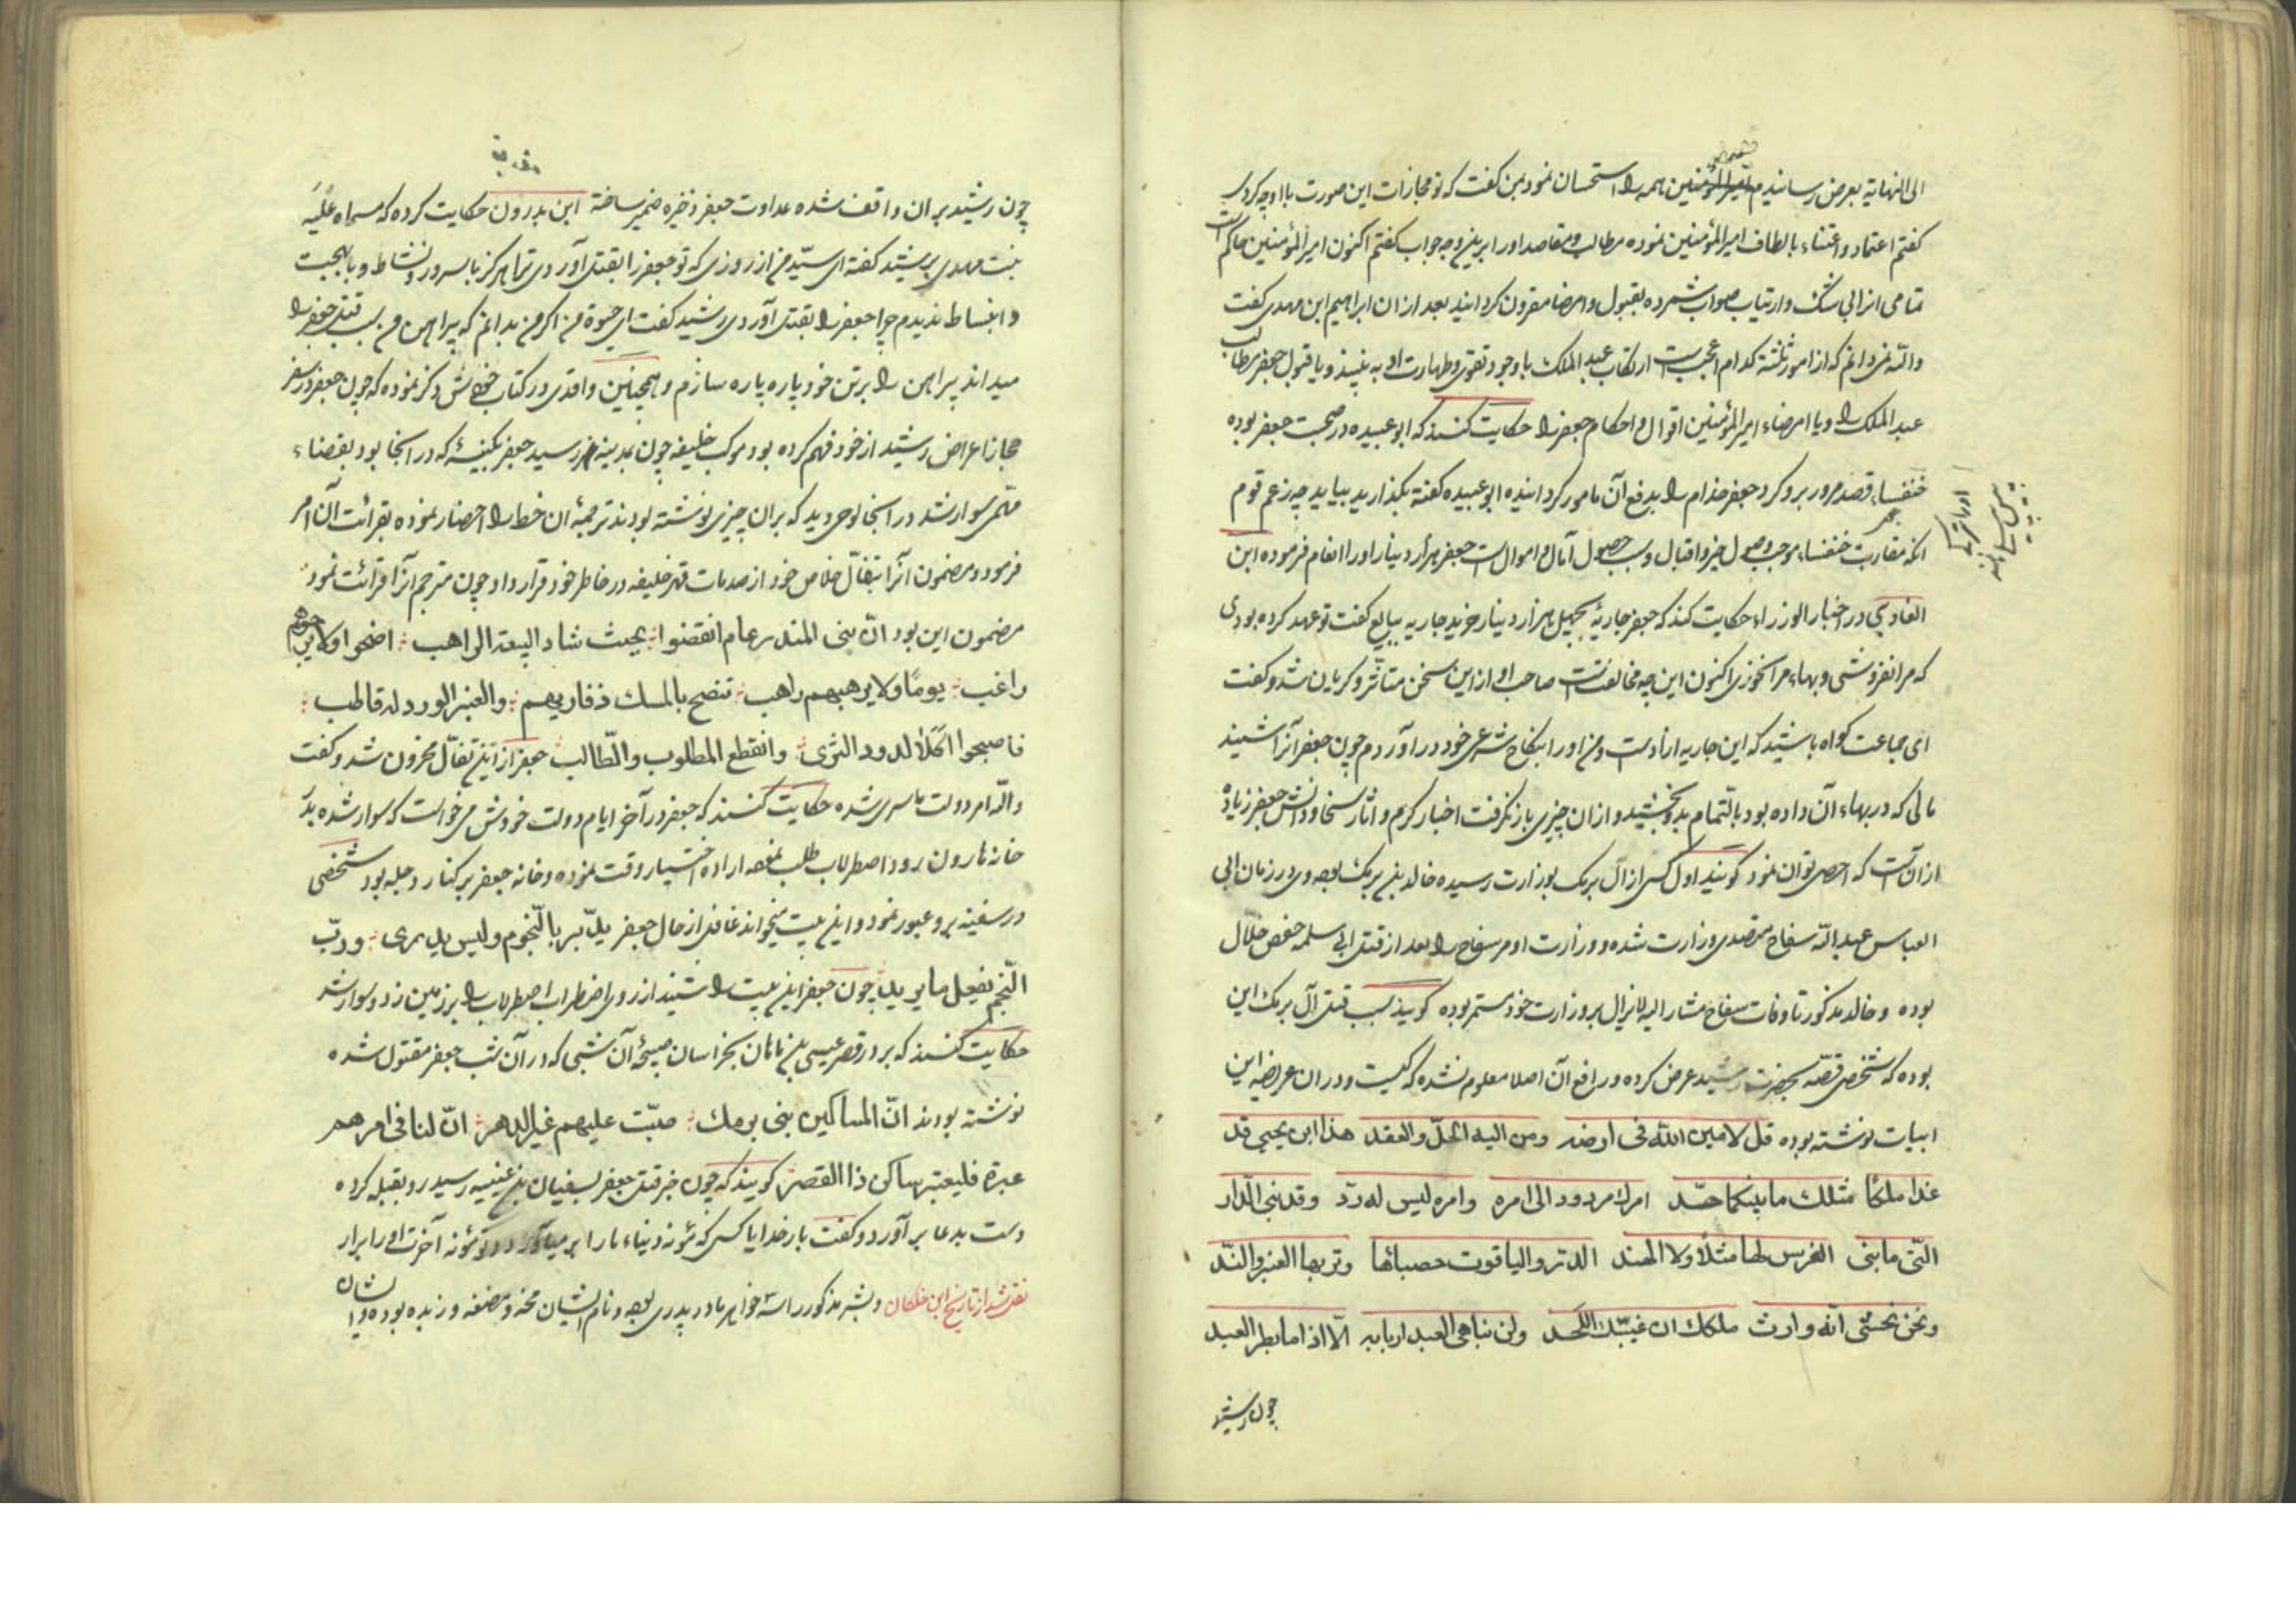 الی النهایة بعرض رسانیدم امیر المؤمنین همه را استحسان نمود بمن گفت که تو مجازات این صورت با او چه کردی
گفتم اعتماد و اعتناء بالطاف امیر المؤمنین نموده مطالب و مقاصد او را برین وجه جواب گفتم اکنون امیر المؤمنین حاکم است
تمامی انرا بی شک و ارتیاب صواب شمرده بقبول و امضا مقرون گردانید بعد از ان ابراهیم ابن مهدی گفت
والله نمی دانم که از امور ثلثه کدام اعجبست ارتکاب عبد الملک با وجود تقوی و طهارت او به نبیذ و یا قبول جعفر مطالب
عبد الملک را و یا امضاء امیر المؤمنین اقوال و احکام جعفر را حکایت کنند که ابو عبیده در صحبت جعفر بوده
خنفساء قصد مرور برو کرد جعفر خدام را بدفع آن مامور گردانیده ابو عبیده گفته بگذارید بیاید چه زعم قوم
انکه مقاربت خنفساء موجب وصول خیر و اقبال و سبب حصول آمال و اموال است جعفر هزار دینار او را انعام فرموده ابن
القادسی در اخبار الوزراء حکایت کند که جعفر جاریهٔ بچهل هزار دینار خرید جاریه ببایع گفت تو عهد کرده بودی
که مرا نفروشی و بهاء مرا نخوری اکنون این چه مخالفتست صاحب او از این سخن متاثر و گریان شد و گفت
ای جماعت گواه باشید که این جاریه ازادست و من او را بنکاح شرعی خود در اوردم چون جعفر آنرا شنید
مالی که در بهاء آن داده بود بالتمام بدو بخشید و از ان چیزی باز نگرفت اخبار کرم و اثار سخا و دانش جعفر زیاده
از آنست که احصی توان نمود گویند اول کسی از آل برمک بوزارت رسیده خالد بن برمک بوده وی در زمان ابی
العباس عبد الله سفاح متصدی وزارت شده و وزارت او مر سفاح را بعد از قتل ابی سلمه حفص خلال
بوده و خالد مذکور تا وفات سفاح مشار الیه لا یزال بر وزارت خود مستمر بوده گویند سبب قتل آل برمک این
بوده که شخصی قصّه بحضرت رشید عرض کرده و رافع آن اصلا معلوم نشده که کیست و در ان عریضه این
ابیات نوشته بوده قل لامین الله فی ارضه ومن الیه الحلّ والعقد هذا ابن یحیی قد
غدا ملکًا مثلك ما بینکما حدّ امرك مردود الی امره وامره لیس له ردّ وقد بنی الدّار
الّتی ما بنی الفرس لها مثلًا ولا الهند الدر والیاقوت حصبائها وتربها العنبر والندّ
ونحن نخشی انّه وارث ملکك ان غیّبك اللّحد ولن یباهی العبد اربابه الّا اذا ما بطر العبد
چون رشید
چون رشید بر ان واقف شده عداوت جعفر ذخیره ضمیر ساخته ابن بدرون حکایت کرده که مسماه علیّه
بنت مهدی برشید گفته ای سیّد من از روزی که تو جعفر را بقتل آوردی ترا هرگز با سرور و نشاط و با بهجت
و انبساط ندیدم چرا جعفر را بقتل آوردی رشید گفت ای حیوة من اگر من بدانم که پیراهن من سبب قتل جعفر را
میداند پیراهن را بر تن خود پاره پاره سازم و همچنین واقدی در کتاب خویش ذکر نموده که چون جعفر در سفر
حجاز اعراض رشید از خود فهم کرده بود موکب خلیفه چون بمدینه رسید جعفر بکنیسهٔ که در انجا بود بقضاء
سوار شد در انجا لوحی دید که بران چیزی نوشته بودند ترجمهٔ ان خط را احضار نموده بقرائت آن امر
فرمود و مضمون آنرا بتفال خلاص خود از صدمات قهر خلیفه در خاطر خود قرار داد چون مترجم آنرا قرائت نمود
مضمون این بود انّ بنی المنذر عام انقضوا بحیث شاد البیعة الراهب اضحوا ولا یرجوهم
راغب یومًا ولا یرهبهم راهب تنضح بالمسك ذفاریهم والعنبر الورد له قاطب
فاصبحوا اکلًا لدود الثری وانقطع المطلوب والطّالب جعفر از این تفال محزون شد و گفت
والله امر دولت ما سپری شده حکایت کنند که جعفر در آخر ایام دولت خودش می خواست که سوار شده بدر
خانه هارون رود اصطرلاب طلب نموده اراده اختیار وقت نموده و خانه جعفر بر کنار دجله بود شخصی
در سفینه برو عبور نمود و این بیت میخواند غافل از حال جعفر یدبّر بالنّجوم ولیس یدری وربّ
النّجم یفعل ما یرید چون جعفر این بیت را شنید از روی اضطراب اصطرلاب را بر زمین زد و سوار شد
حکایت کنند که بر در قصر عیسی بن ماهان بخراسان صبیحهٔ آن شبی که در آن شب جعفر مقتول شده
نوشته بودند انّ المساکین بنی برمك صبّت علیهم غیر الدهر انّ لنا فی امرهم
عبرة فلیعتبر ساکن ذا القصر گویند که چون خبر قتل جعفر بسفیان بن عیینه رسید رو بقبله کرده
دست بدعا بر آورد و گفت بار خدایا کسی که مئونه دنیاء ما را بر میآورد تو مئونه آخرت او را برار
نقل شد از تاریخ ابن خلکان و بشر مذکور را سه خواهر مادر پدری بوده و نام ایشان مخه و مضغه و زبده بوده و ایشان